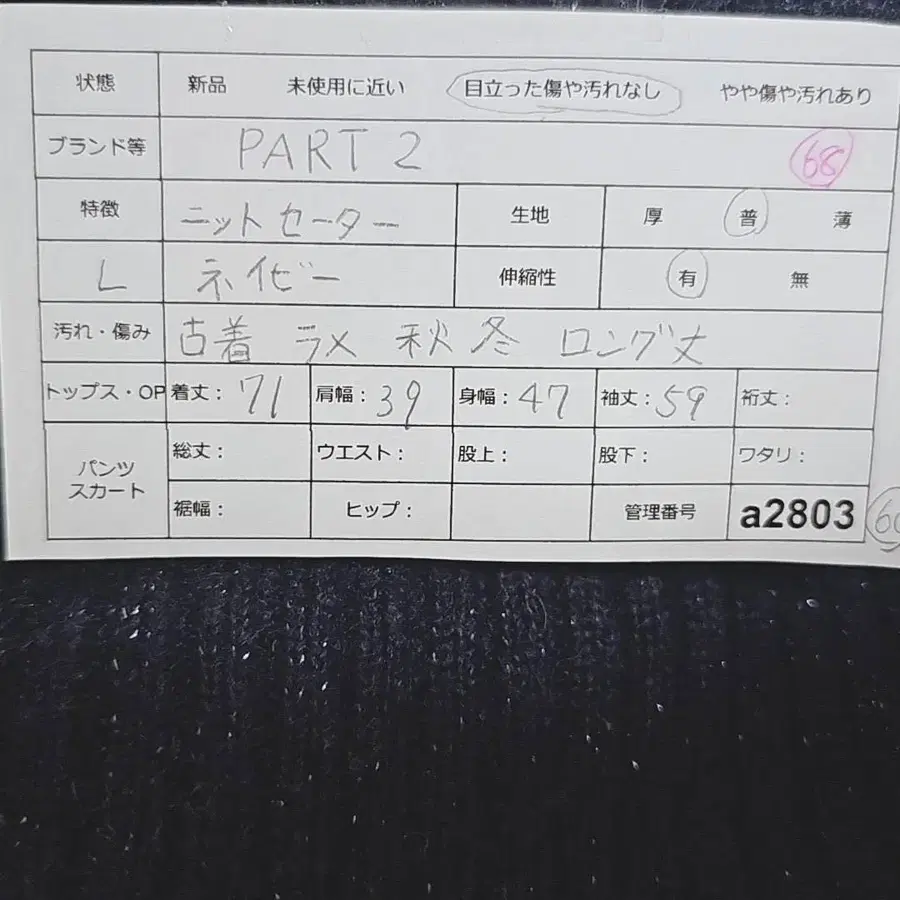 状態 新品 未使用に近い 目立った傷や汚れなし やや傷や汚れあり
ブランド等 PART 2 68
特徴 ニットセーター 生地 厚 普 薄
L ネイビー 伸縮性 有 無
汚れ・傷み 古着 ラメ 秋冬 ロング丈
トップス・OP 着丈: 71 肩幅: 39 身幅: 47 袖丈: 59 裄丈:
パンツ スカート 総丈: ウエスト: 股上: 股下: ワタリ:
裾幅: ヒップ: 管理番号 a2803